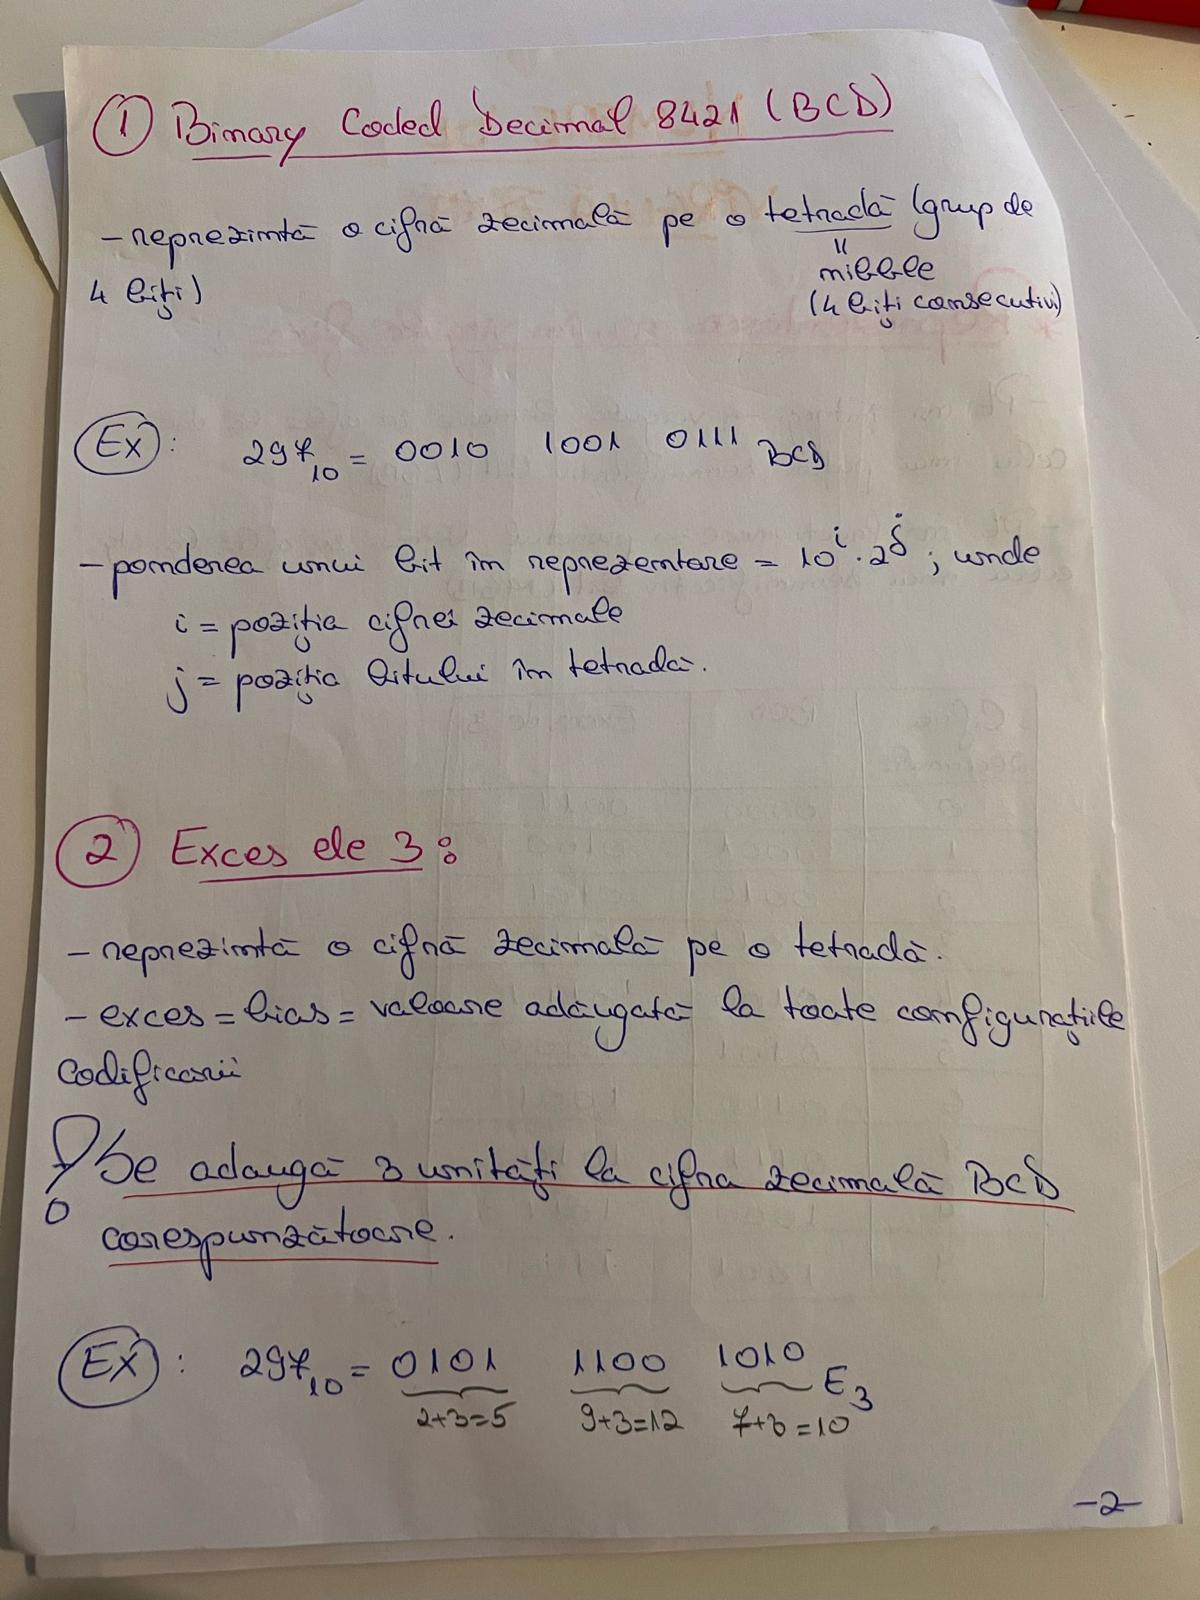 ① Binary Coded Decimal 8421 (BCD)
- reprezintă o cifră zecimală pe o tetradă (grup de
4 biți)
"
nibble
(4 biți consecutivi)
Ex: 297₁₀ = 0010 1001 0111 BCD
- ponderea unui bit în reprezentare = 10ⁱ · 2ʲ ; unde
i = poziția cifrei zecimale
j = poziția bitului în tetradă.
② Exces de 3:
- reprezintă o cifră zecimală pe o tetradă.
- exces = bias = valoare adăugată la toate configurațiile
codificării
! Se adaugă 3 unități la cifra zecimală BCD
corespunzătoare.
Ex: 297₁₀ = 0101 1100 1010 E₃
2+3=5 9+3=12 7+3=10
-2-